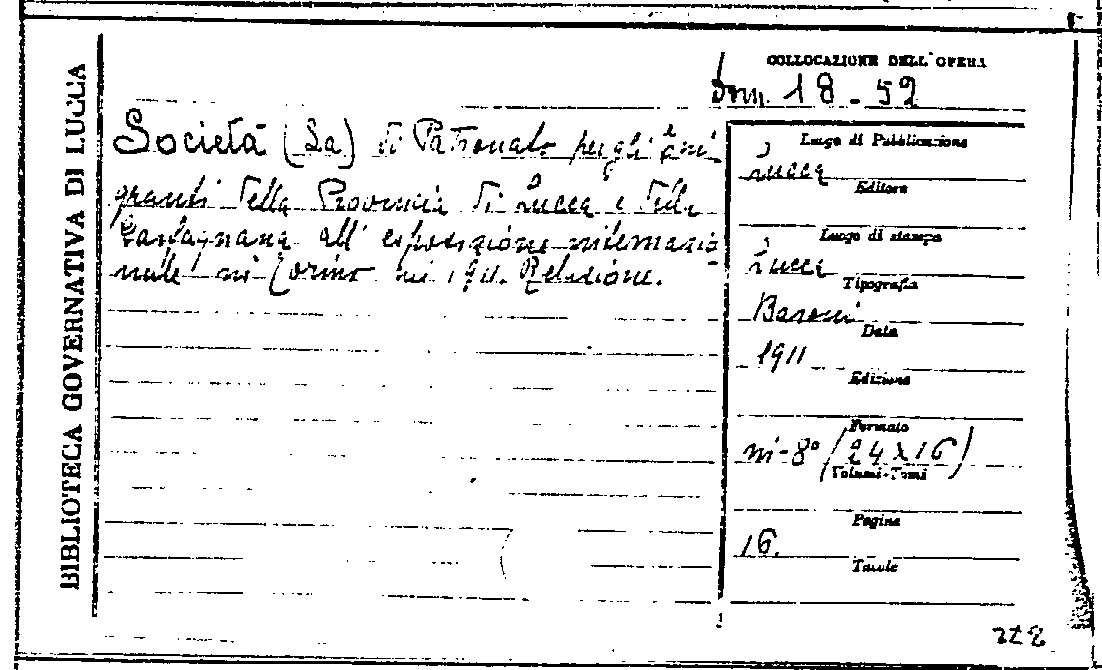 BIBLIOTECA GOVERNATIVA DI LUCCA
COLLOCAZIONE DELL'OPERA
18-52
Società (La) di Patronato per gli emi-
granti della Provincia di Lucca e della
Garfagnana all'esposizione internazio
nale in Torino nel 1911. Relazione.
Luogo di Pubblicazione
Lucca
Editore
Luogo di stampa
Lucca
Tipografia
Baroni
Data
1911
Edizione
Formato
in-8° (24X16)
Volumi-Tomi
Pagine
16.
Tavole